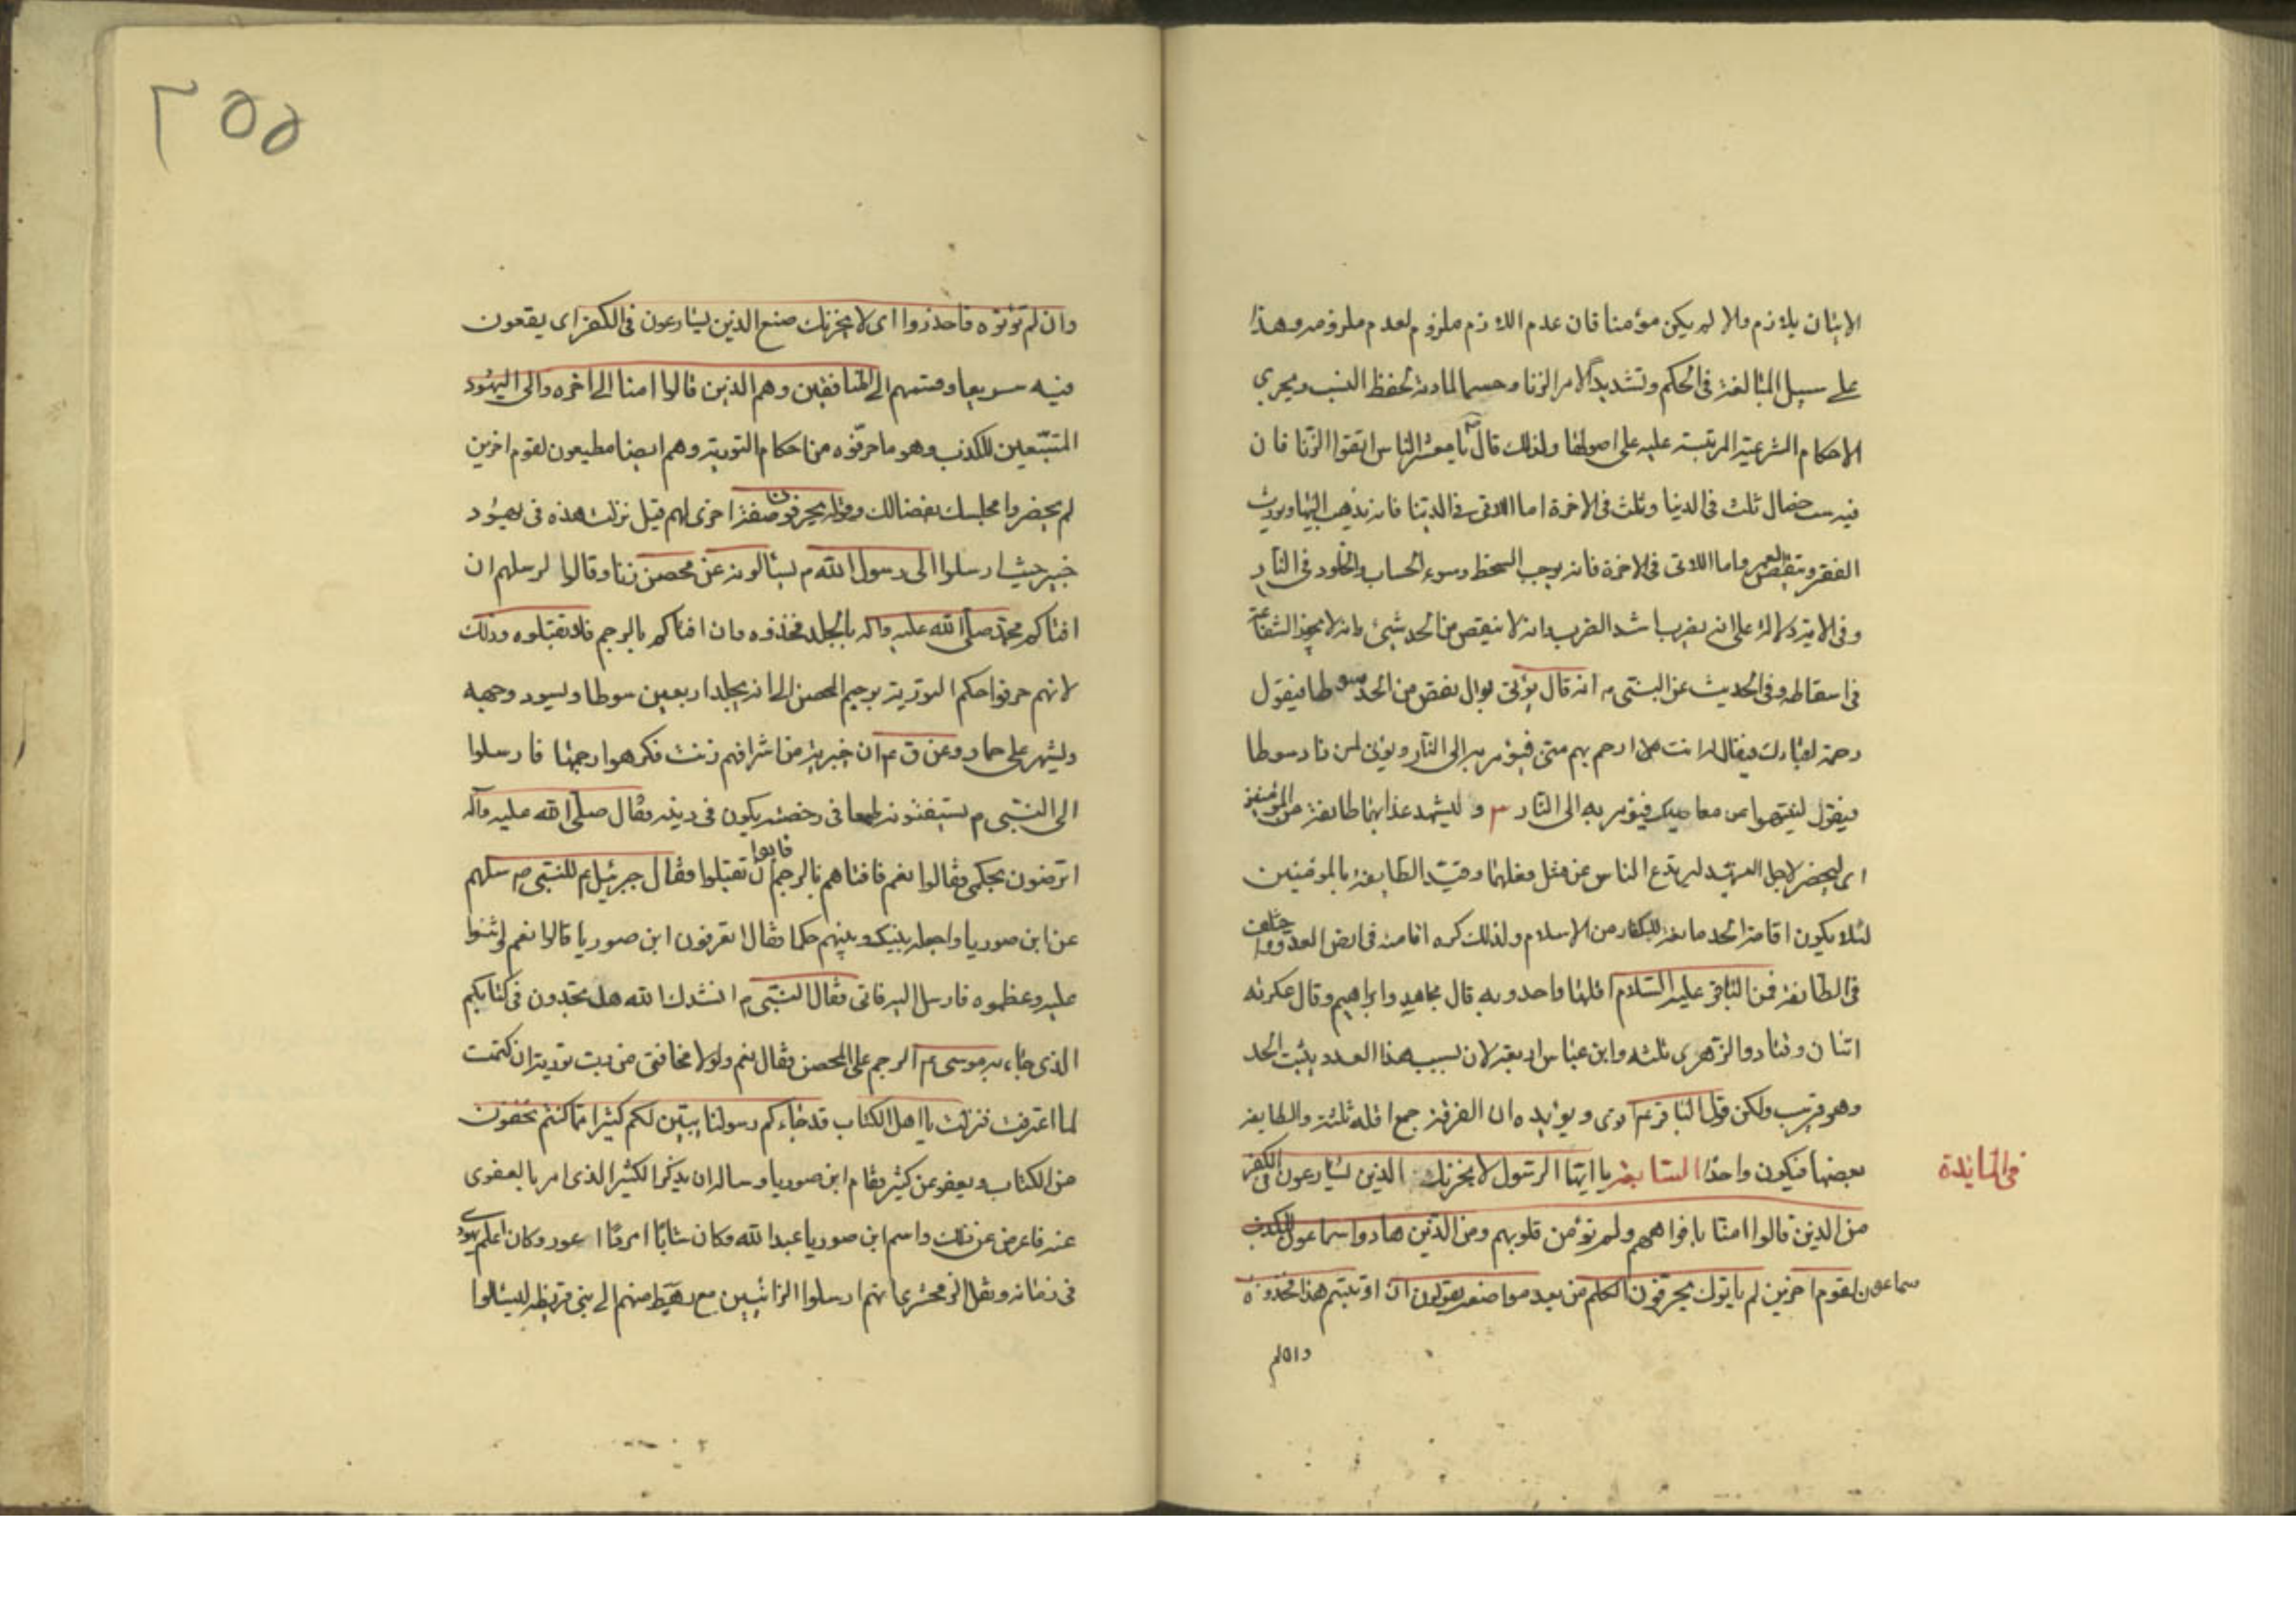 الاتيان بلازم والا لم يكن مؤمنا فان عدم اللازم ملزوم لعدم ملزومه وهذا
على سبيل المبالغة فى الحكم وتشديدا لامر الزنا وحسما لمادته لحفظ النسب ويجرى
الاحكام الشرعية المرتبة عليه على اصولها ولذلك قال يا معشر الناس اتقوا الزنا فان
فيه ست خصال ثلث فى الدنيا وثلث فى الاخرة اما اللاتى فى الدنيا فانه يذهب البهاء ويورث
الفقر وينقص العمر واما اللاتى فى الاخرة فانه يوجب السخط وسوء الحساب والخلود فى النار
وفى الاية دلالة على انه يضرب اشد الضرب وانه لا ينقص من الحد شيئ وانه لا يجوز الشفاعة
فى اسقاطه وفى الحديث عن النبى م انه قال يؤتى بوال نقص من الحد سوطا فيقول
رحمة لعبادك فيقال له انت ارحم بهم منى فيؤمر به الى النار ويؤتى لمن زاد سوطا
فيقول لينتهوا عن معاصيك فيؤمر به الى النار ٣ وليشهد عذابهما طايفة من المؤمنين
اى ليحضر لاجل التهديد ليرتدع الناس عن مثل فعلهما وقيد الطايفة بالمؤمنين
لئلا يكون اقامة الحد مانعة للكفار من الاسلام ولذلك كره اقامته فى ارض العدو واختلف
فى الطايفة فمن الباقر عليه السلام اقلها واحد وبه قال مجاهد وابراهيم وقال عكرمة
اثنان وقتادة والزهرى ثلثه وابن عباس اربعة لان بسبب هذا العدد يثبت الحد
وهو قريب ولكن قول الباقر ع اقوى ويؤيده ان الفرقة جمع اقله ثلثة والطايفة
بعضها فيكون واحدا السابعة يا ايها الرسول لا يحزنك الذين يسارعون فى الكفر
فى المائدة
من الذين قالوا امنا بافواههم ولم تؤمن قلوبهم ومن الذين هادوا سماعون للكذب
سماعون لقوم اخرين لم ياتوك يحرفون الكلم من بعد مواضعه يقولون ان اوتيتم هذا فخذوه
وان لم
٢٥٥
وان لم تؤتوه فاحذروا اى لا يحزنك صنع الذين يسارعون فى الكفر اى يقعون
فيه سريعا وقسمهم الى المنافقين وهم الذين قالوا امنا الى اخره والى اليهود
المتبعين للكذب وهو ما حرفوه من احكام التورية وهم ايضا مطيعون لقوم اخرين
لم يحضروا مجلسك بغضا لك وقوله يحرفون صفة اخرى لهم قيل نزلت هذه فى يهود
خيبر حيث ارسلوا الى رسول الله م يسالونه عن محصن زنا وقالوا لرسلهم ان
افتاكم محمد صلى الله عليه واله بالجلد فخذوه وان افتاكم بالرجم فلا تقبلوه وذلك
لانهم حرفوا حكم التورية برجم المحصن الى انه يجلد اربعين سوطا ويسود وجهه
ويشهر على حمار وعن ق ع ان خيبرية من اشرافهم زنت فكرهوا رجمها فارسلوا
الى النبى م يستفتونه طمعا فى رخصة يكون فى دينه فقال صلى الله عليه وآله
اترضون بحكمى فقالوا نعم فافتاهم بالرجم فابوا ان تقبلوا فقال جبرئيل ع للنبى م سلهم
عن ابن صوريا واجعله بينك وبينهم حكما فقال اتعرفون ابن صوريا قالوا نعم واثنوا
عليه وعظموه فارسل اليه فاتى فقال النبى م انشدك الله هل تجدون فى كتابكم
الذى جاء به موسى ع الرجم على المحصن فقال نعم ولولا مخافتى من رب تورية ان كتمت
لما اعترفت فنزلت يا اهل الكتاب قد جاءكم رسولنا يبين لكم كثيرا مما كنتم تخفون
من الكتاب ويعفو عن كثير فقام ابن صوريا وساله ان يذكر الكثير الذى امر بالعفو
عنه فاعرض عن ذلك واسم ابن صوريا عبدالله وكان شابا امردا اعور وكان اعلم يهود
فى زمانه ونقل الزمخشرى انهم ارسلوا الزانيين مع رهط منهم الى بنى قريظه ليسالوا